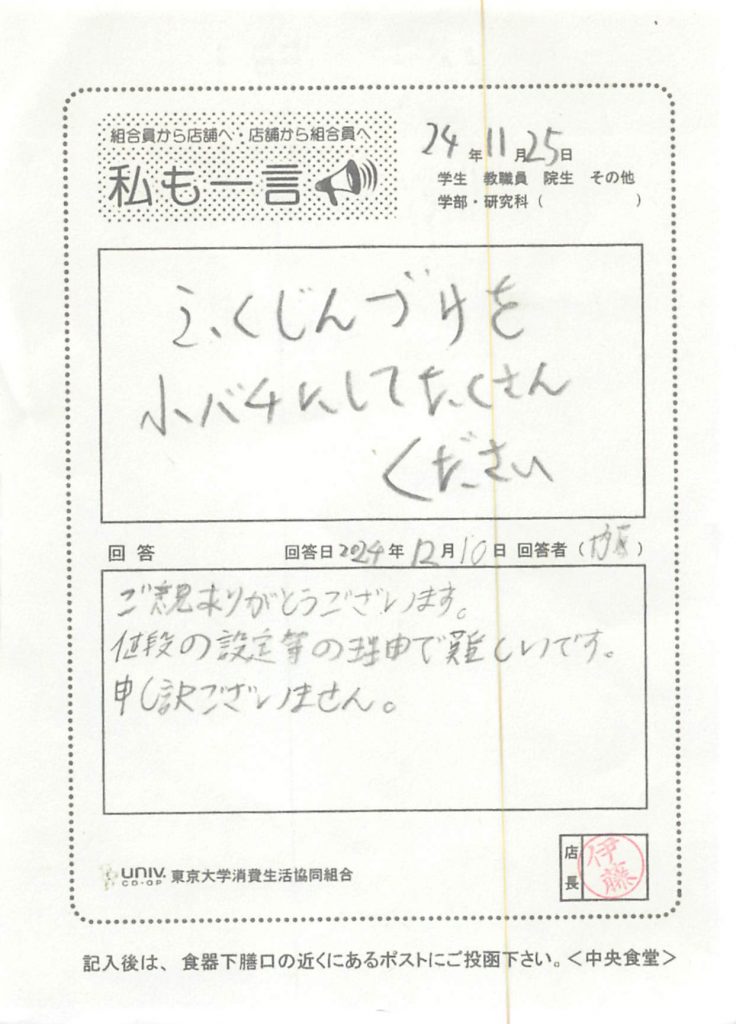 組合員から店舗へ・店舗から組合員へ
私も一言
24年11月25日
学生 教職員 院生 その他
学部・研究科( )
ふくじんづけを
小バチにしてたくさん
ください
回答 回答日2024年12月10日 回答者( )
ご意見ありがとうございます。
値段の設定等の理由で難しいです。
申し訳ございません。
UNIV. CO-OP 東京大学消費生活協同組合
店長 伊藤
記入後は、食器下膳口の近くにあるポストにご投函下さい。<中央食堂>